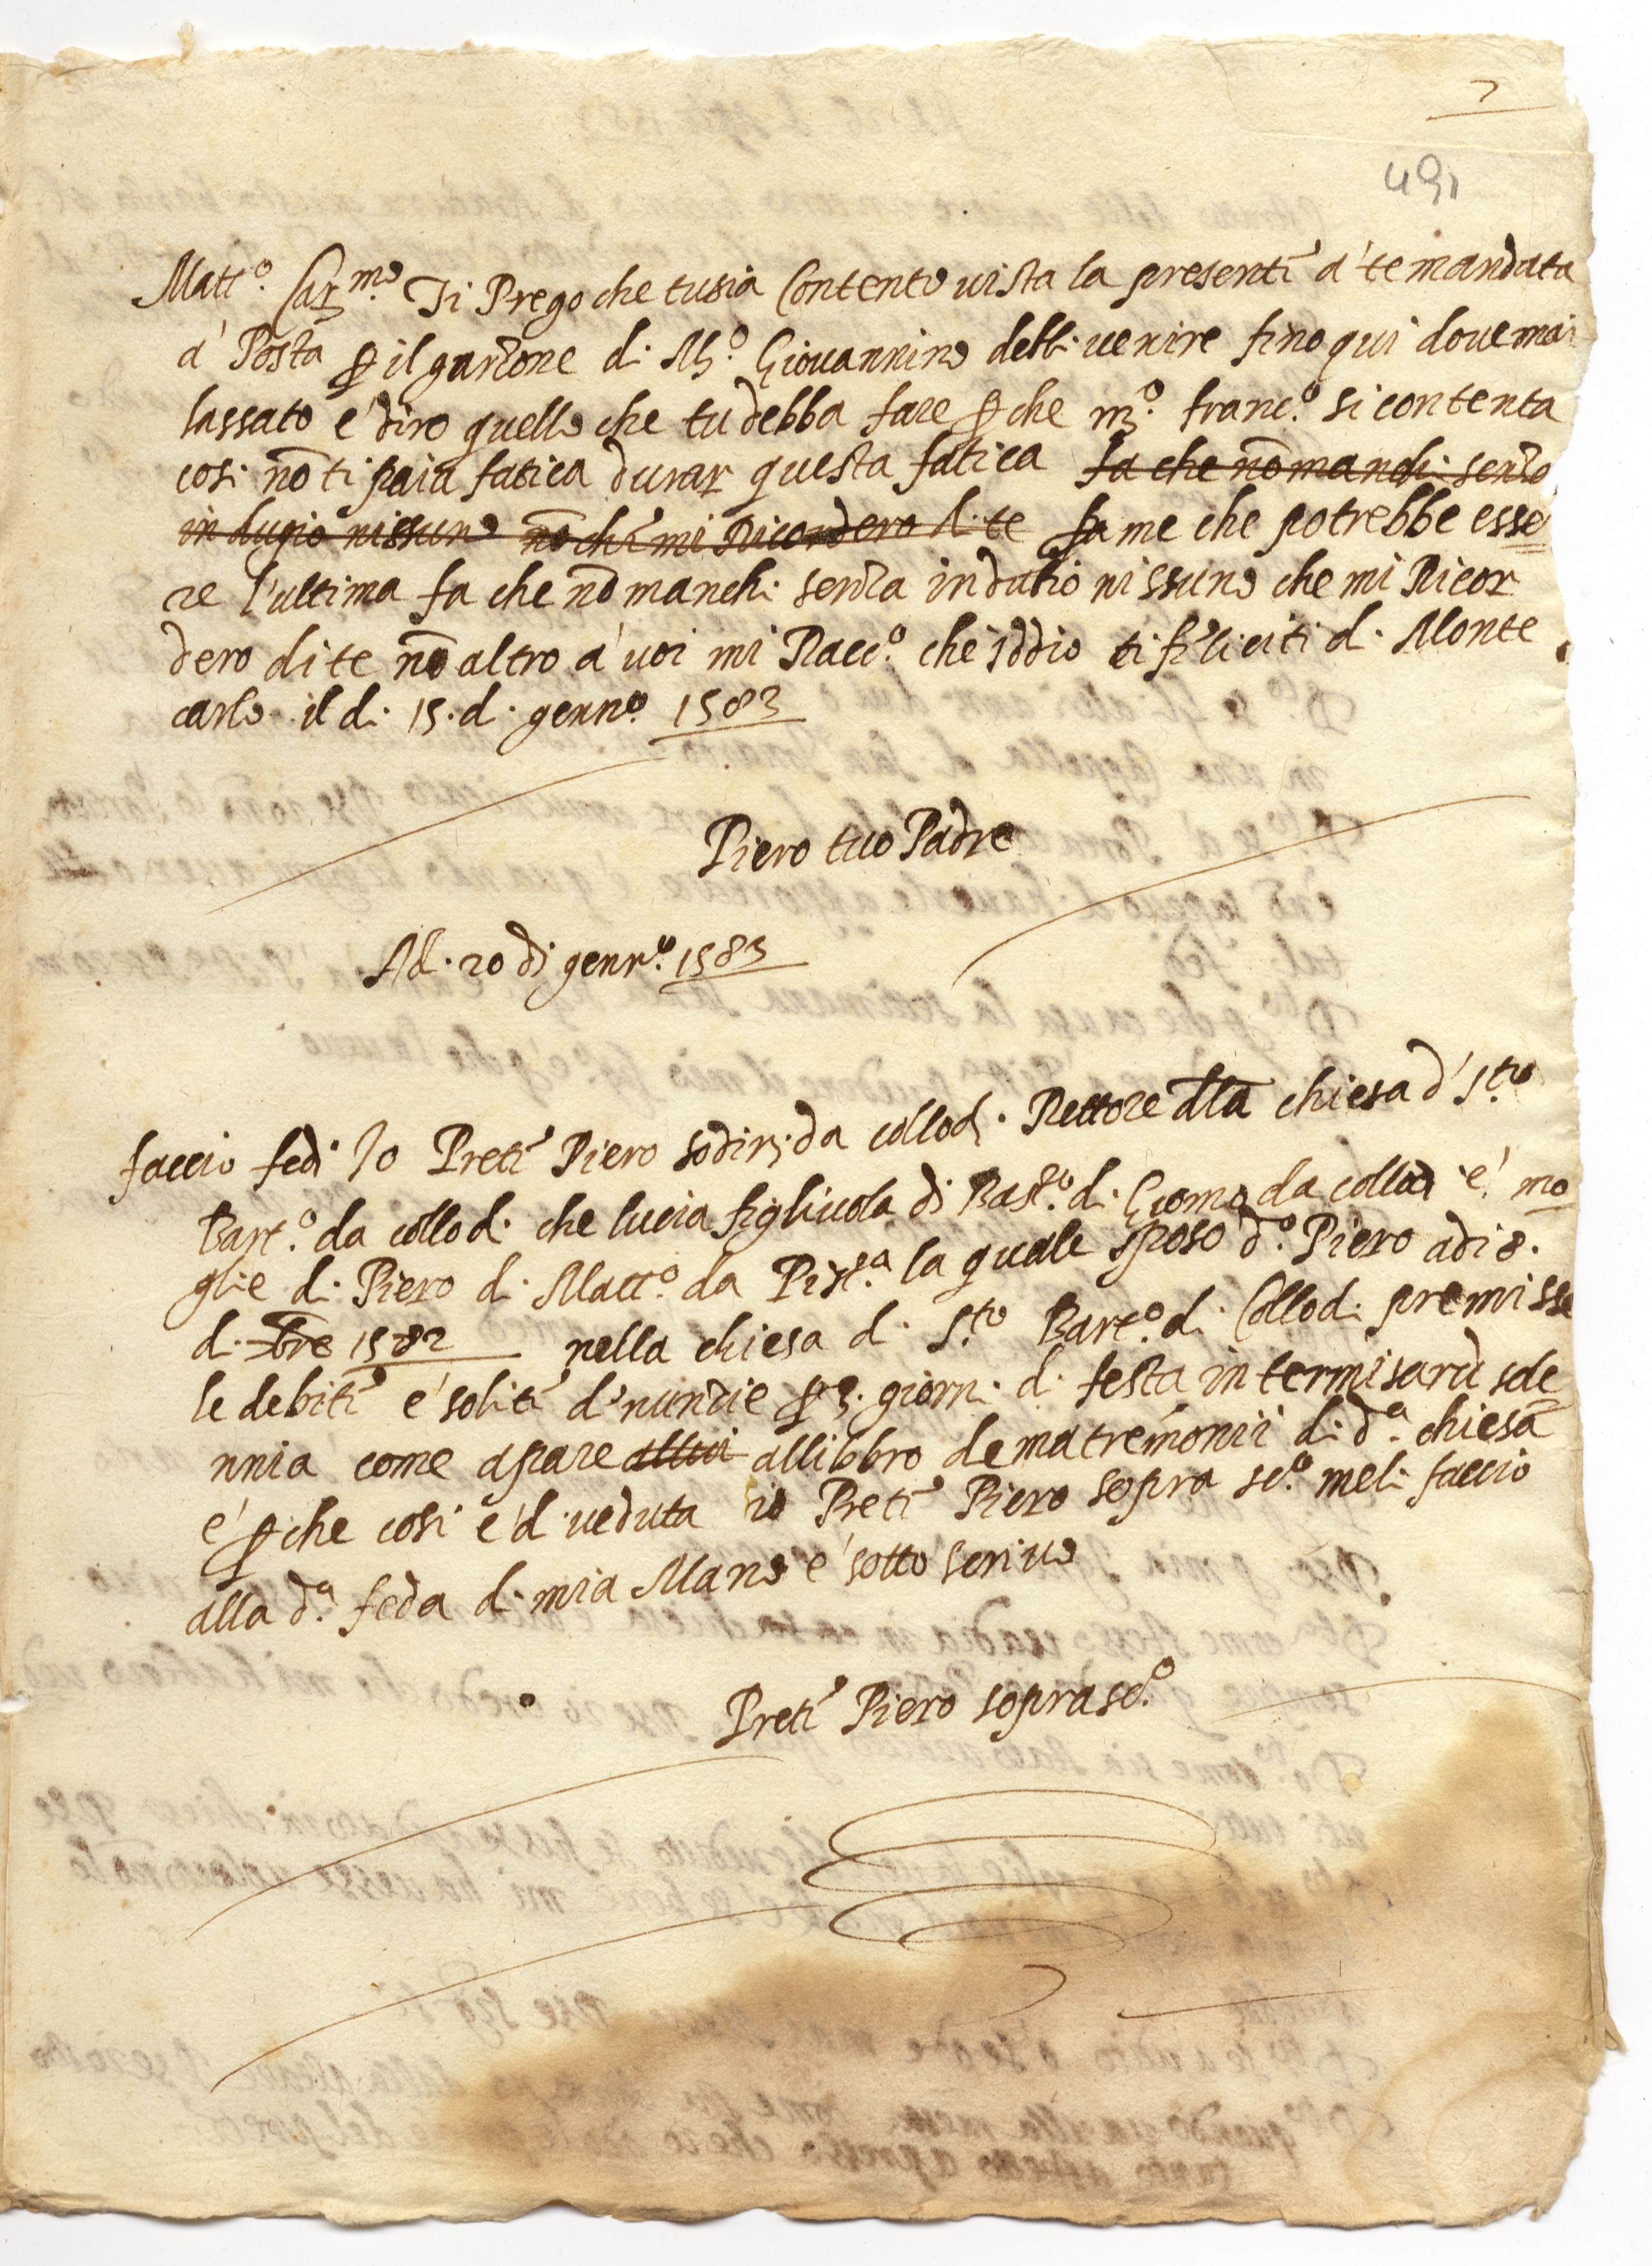 7
491
Matt.o Car.mo Ti Prego che tu sia Contento uista la presente a' te mandata
a' Posta p il garzone di Ms.o Giovannino debbi uenire fino qui doue mai
lassato e' diro quello che tu debba fare p che m.o franc.o si contenta
cosi nō ti paia fatica durar questa fatica fa che nō manchi senza
indugio nissuno nō che mi Ricordero di te fa me che potrebbe esse
re l'ultima fa che nō manchi senza indutio nissuno che mi Ricor
dero di te nō altro a' uoi mi Racc.o che Iddio ti feliciti di Monte
carlo il di 15. di genn.o 1583
Piero tuo Padre
Adi. 20 di genn.o 1583
faccio fede Io Prete Piero sodini da collodi. Rettore dlla chiesa d' S.to
Bart.o da collodi che lucia figliuola di Bast.o di Giomo da collodi e' mo
glie di Piero di Matt.o da Pist.a la quale sposo d.o Piero adi 8.
di xbre 1582 nella chiesa di S.to Bart.o di Collodi premisse
le debite e' solite d'nunzie p 3. giorni di festa in termisaru sole
nnia come apare allui allibbro de matremonii di d.a chiesa
e' p che cosi e' d ueduta io Prete Piero sopra sc.o meli faccio
alla d.a feda di mia Mano e' sotto scriuo
Prete Piero soprasc.o